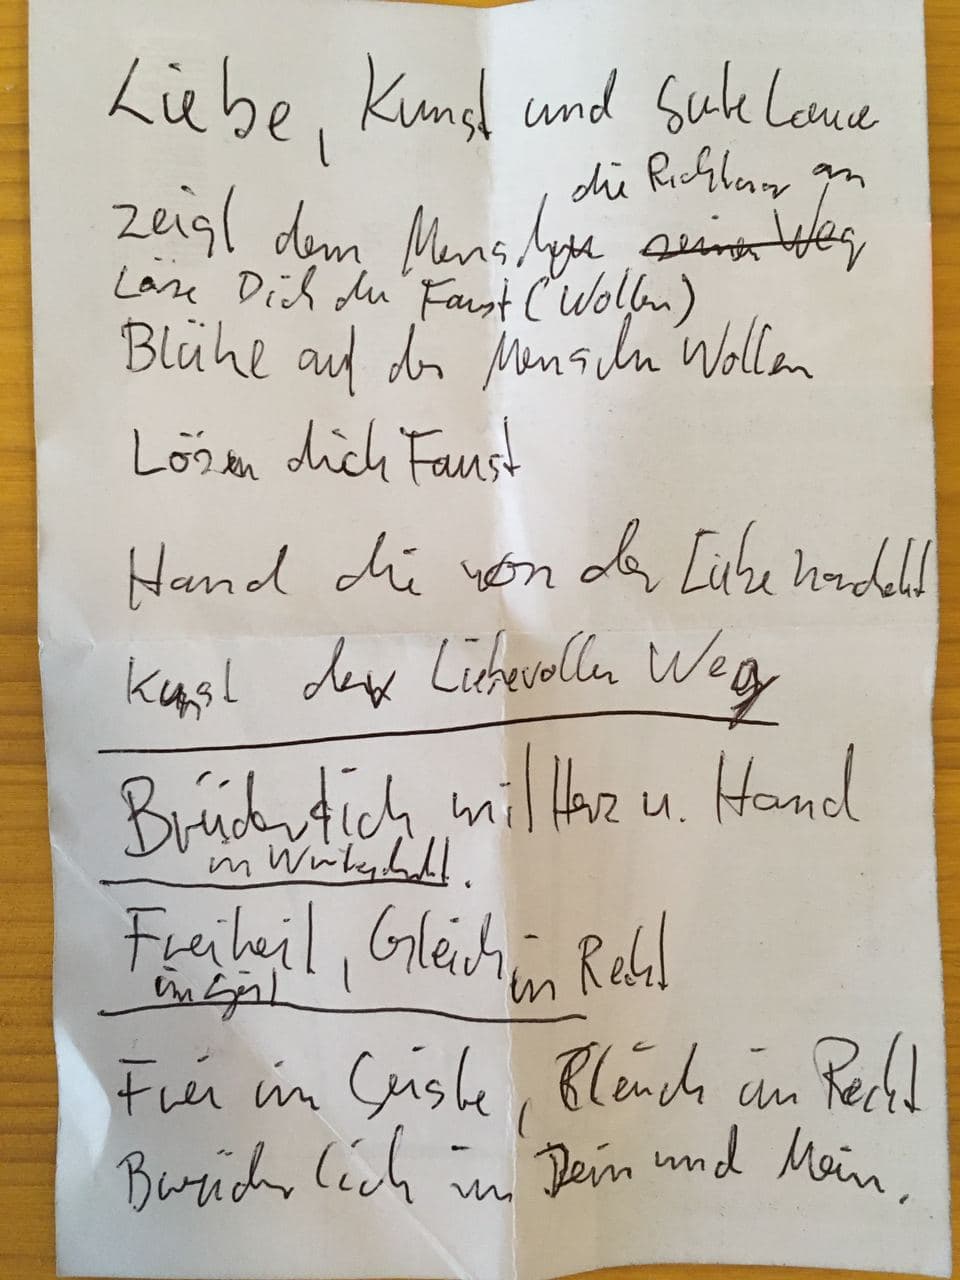 Liebe, Kunst und Gute Laune
die Richtung an
zeigt dem Menschen seinen Weg
Löse Dich der Faust (Wollen)
Blühe auf der Menschen Wollen
Lösen dich Faust
Hand die von der Liebe handelt
Kunst der Liebevollen Weg
Brüderlich mit Herz u. Hand
in Wirtschaft.
Freiheit, Gleich in Recht
im Geist
Frei im Geiste, Gleich im Recht
Brüderlich im Dein und Mein.